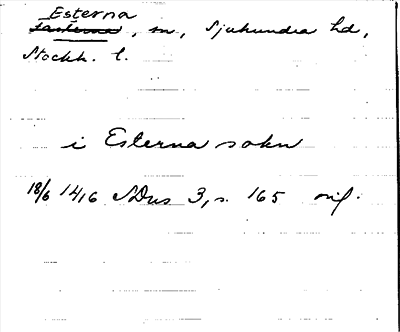 Esterna
Fasterna, sn, Sjuhundra hd,
Stockh. l.
i Esterna sokn
18/6 1416 SDns 3, s. 165 orig.